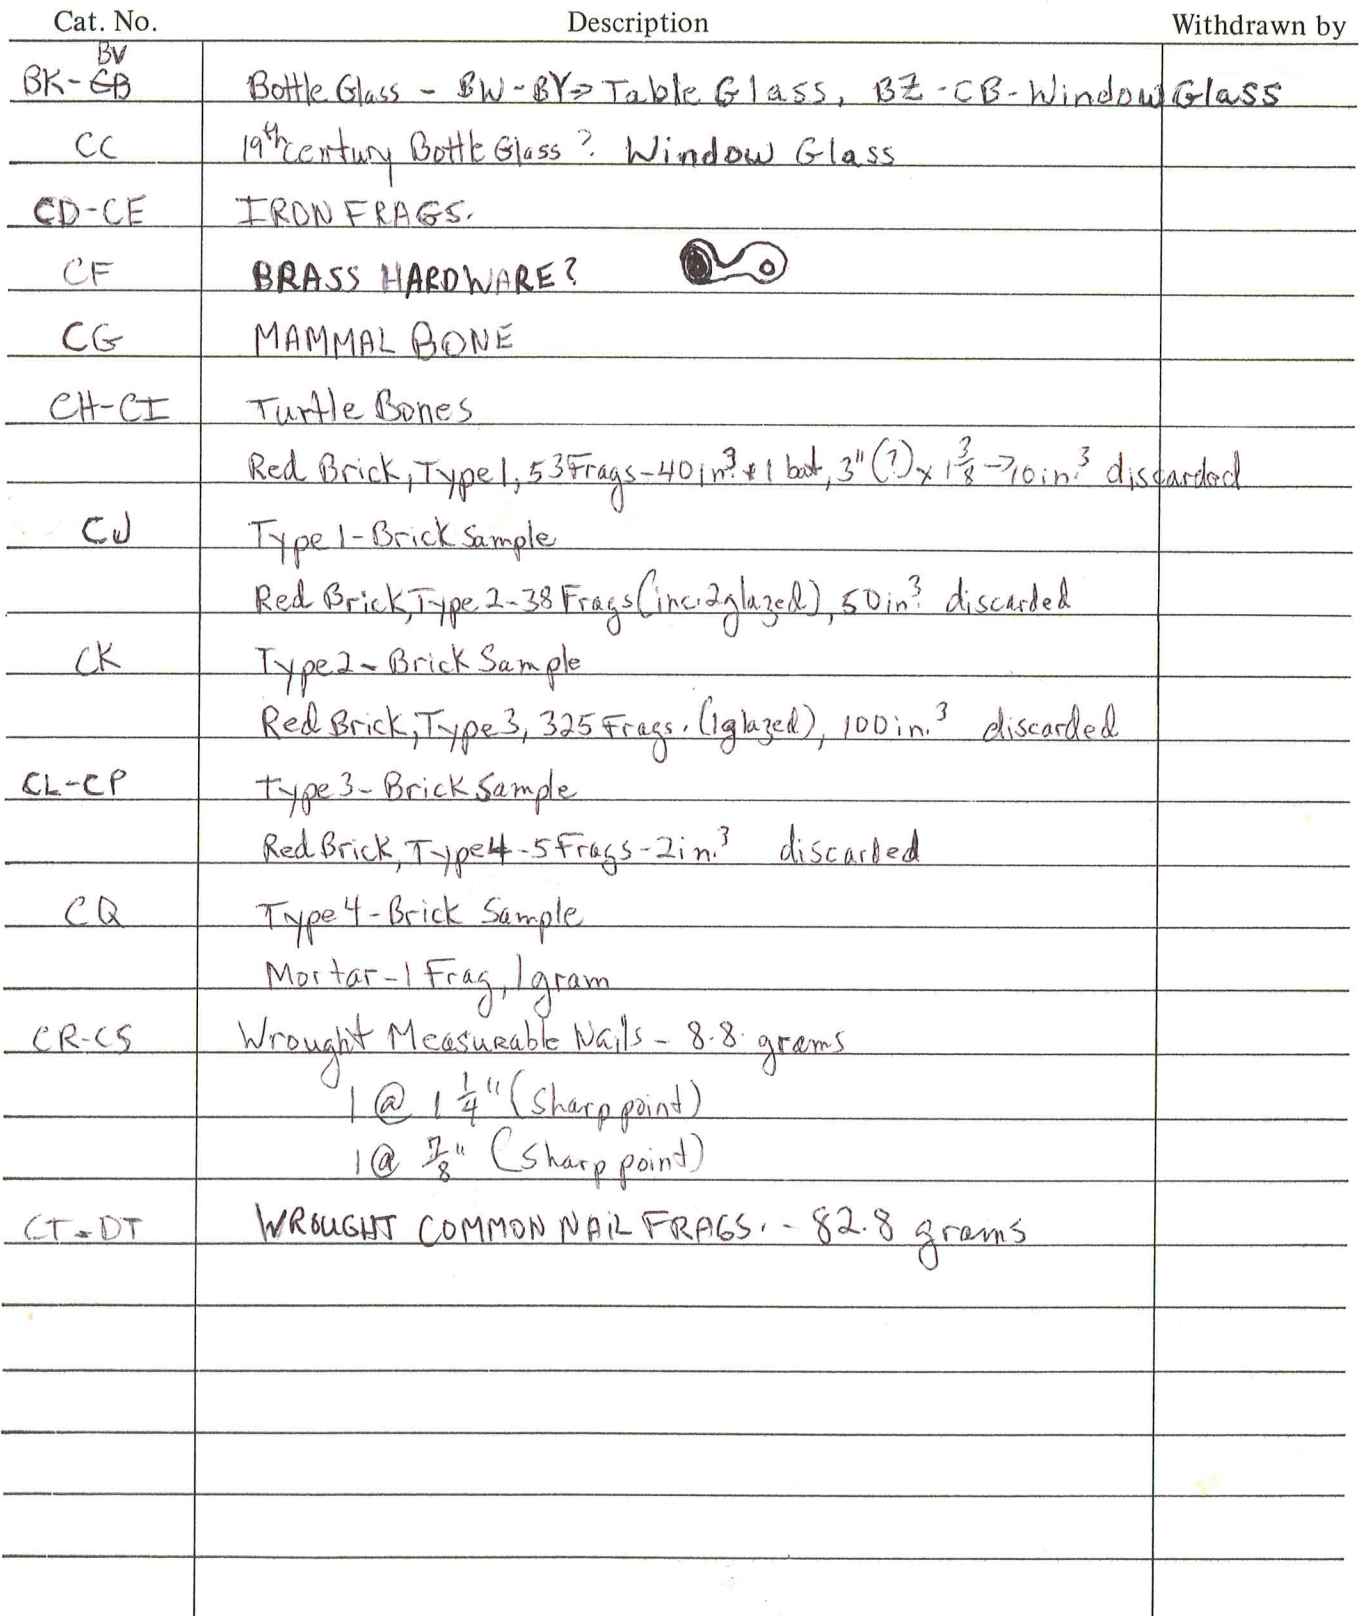 Cat. No. Description Withdrawn by
BV
BK-CB Bottle Glass - BW-BY⇒Table Glass, BZ-CB-Window Glass
CC 19th century Bottle Glass? Window Glass
CD-CE IRON FRAGS.
CF BRASS HARDWARE?
CG MAMMAL BONE
CH-CI Turtle Bones
Red Brick, Type 1, 53 Frags-40 in.³ + 1 bat, 3"(?) x 1 3/8 → 10 in.³ discarded
CJ Type 1-Brick Sample
Red Brick, Type 2-38 Frags (inc. 2 glazed), 50 in.³ discarded
CK Type 2-Brick Sample
Red Brick, Type 3, 325 Frags. (1 glazed), 100 in.³ discarded
CL-CP Type 3-Brick Sample
Red Brick, Type 4-5 Frags-2 in.³ discarded
CQ Type 4-Brick Sample
Mortar-1 Frag, 1 gram
CR-CS Wrought Measurable Nails - 8.8 grams
1 @ 1 1/4" (Sharp point)
1 @ 7/8" (Sharp point)
CT-DT WROUGHT COMMON NAIL FRAGS. - 82.8 grams